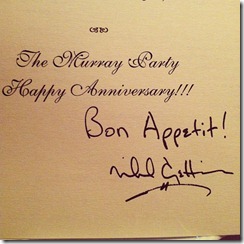 The Murray Party
Happy Anniversary!!!
Bon Appetit!